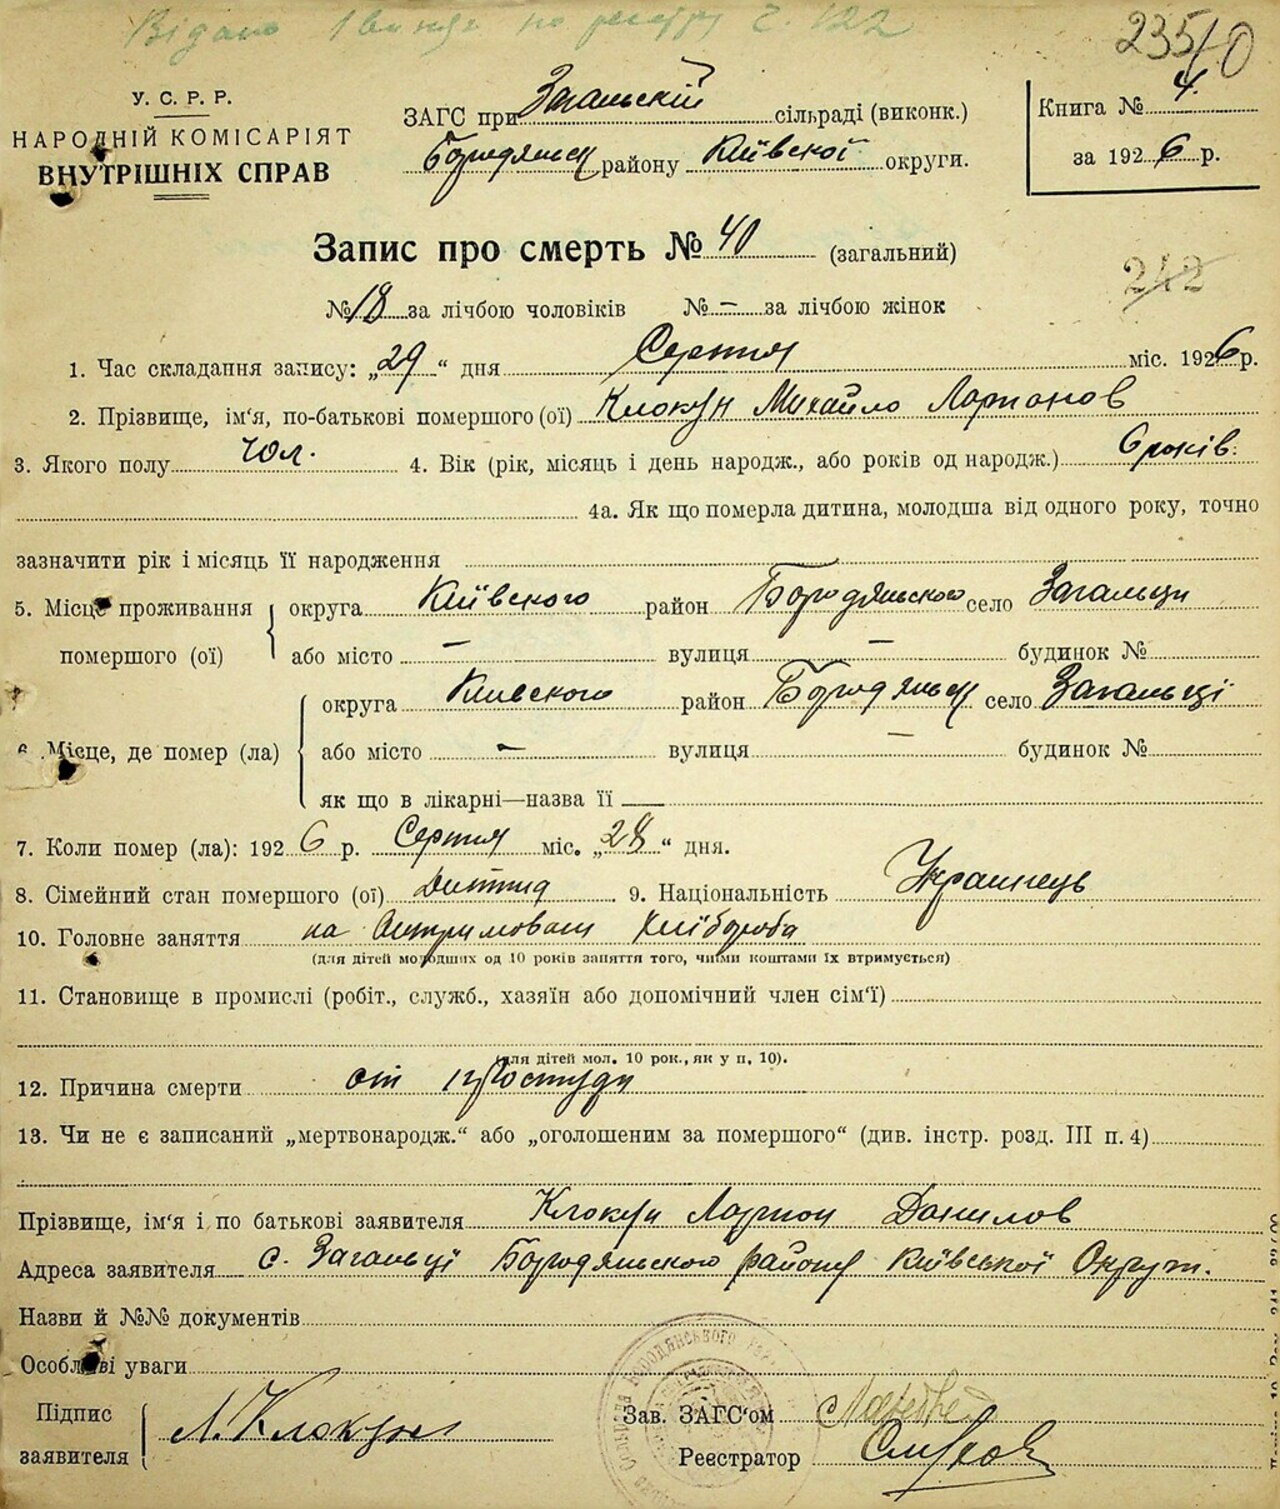 Видано 1 по реєстру č. 122
235/0
У. С. Р. Р.
НАРОДНІЙ КОМІСАРІЯТ
ВНУТРІШНІХ СПРАВ
ЗАГС при Загальскій сільраді (виконк.)
Бородянск району Київскої округи.
Книга № 4.
за 1926 р.
Запис про смерть № 40 (загальний)
242
№ 18 за лічбою чоловіків № – за лічбою жінок
1. Час складання запису: „29“ дня Серпня міс. 1926 р.
2. Прізвище, ім‘я, по-батькові помершого (ої) Клокун Михайло Ларионов
3. Якого полу чол. 4. Вік (рік, місяць і день народж., або років од народж.) 6 років.
4а. Як що померла дитина, молодша від одного року, точно
зазначити рік і місяць її народження
5. Місце проживання помершого (ої) округа Київского район Бородянського село Загальци
або місто – вулиця – будинок №
6. Місце, де помер (ла) округа Київского район Бородянськ село Загальці
або місто – вулиця – будинок №
як що в лікарні—назва її —
7. Коли помер (ла): 1926 р. Серпня міс. „28“ дня.
8. Сімейний стан помершого (ої) Дитина 9. Національність Українець
10. Головне заняття на хлібороба
(для дітей молодших од 10 років заняття того, чиїми коштами їх втримується)
11. Становище в промислі (робіт., служб., хазяїн або допомічний член сім‘ї)
(для дітей мол. 10 рок., як у п. 10).
12. Причина смерти от простуди
13. Чи не є записаний „мертвонародж.“ або „оголошеним за помершого“ (див. інстр. розд. III п. 4)
Прізвище, ім‘я і по батькові заявителя Клокун Ларион Данилов
Адреса заявителя с. Загальці Бородянського району Київської Округи.
Назви й №№ документів
Особливі уваги
Підпис заявителя Л. Клокун
Зав. ЗАГС‘ом
Реєстратор